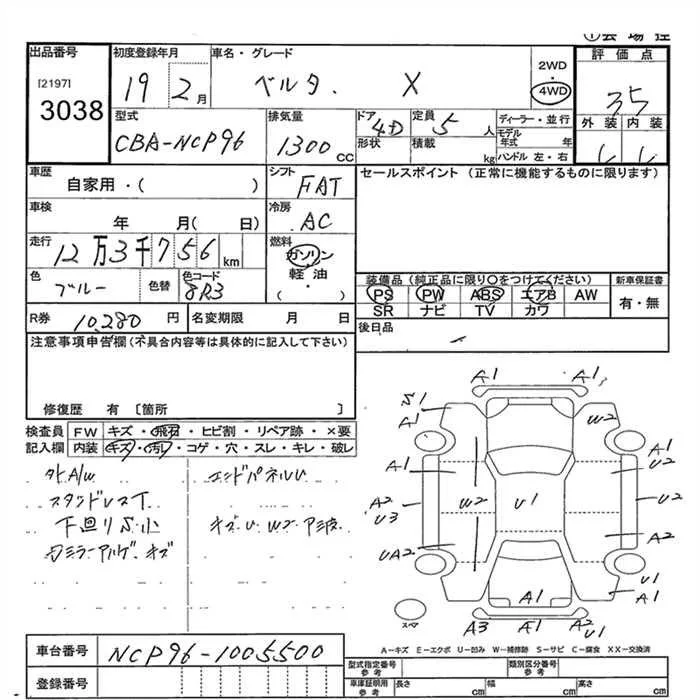 ①会場控
出品番号
[2197]
3038
初度登録年月
19 2月
車名・グレード
ベルタ. X
2WD
・
4WD
評価点
35
型式
CBA-NCP96
排気量
1300 CC
ドア
4D
形状
定員
5 人
積載
kg
ディーラー・並行
モデル年式 年
ハンドル 左・右
外装 内装
車歴
自家用・( )
シフト
FAT
セールスポイント (正常に機能するものに限ります)
車検
年 月( 日)
冷房
AC
走行
12万3千756 km
燃料
ガソリン
軽油
( ・ )
色
ブルー
色替
色コード
8R3
装備品 (純正品に限り○をつけてください)
PS PW ABS エアB AW
SR ナビ TV カワ
新車保証書
有・無
R券
10,280 円
名変期限 月 日
後日品
注意事項申告欄 (不具合内容等は具体的に記入して下さい)
修復歴 有 [箇所 ]
検査員記入欄
FW キズ・飛石・ヒビ割・リペア跡・×要
内装 キズ・汚レ・コゲ・穴・スレ・キレ・破レ
外A/W
スタンドレスT
下回りS小
カミラーアルゲ.キズ
エンドパネルU
キズ.U W2 アミ波.
A1 A1
S1
A1
W2
A1
A1
U2
A2
U3
W2
U1
U2
UA2
A2
U1
A1
A1
A3 A1 A2
U1
スペ
A-キズ E-エクボ U-凹ミ W-補修跡 S-サビ C-腐食 XX-交換済
車台番号
NCP96-1005500
登録番号
型式指定番号
参考
類別区分番号
参考
車庫証明用
参考
長さ cm
幅 cm
高さ cm